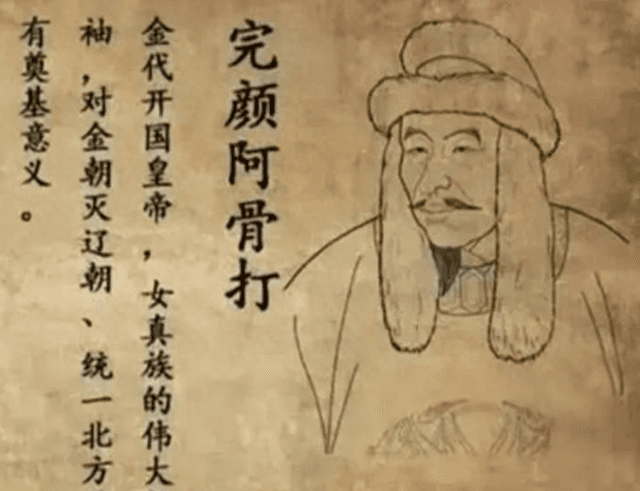 完颜阿骨打
金代开国皇帝，女真族的伟大
袖，对金朝灭辽朝、统一北方
有奠基意义。